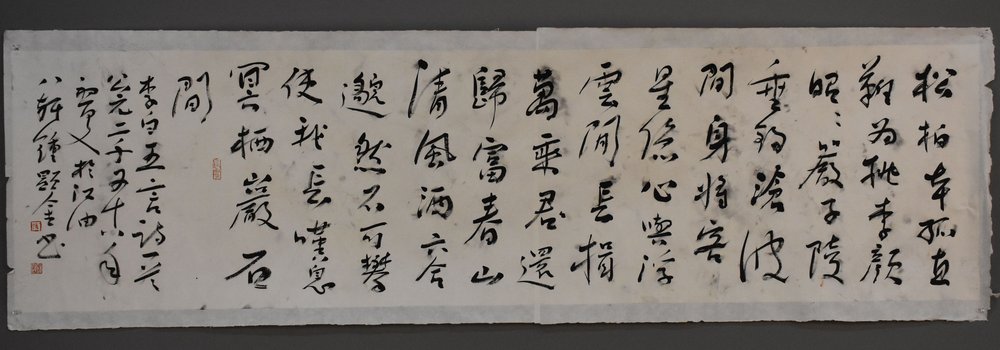 松柏本孤直
難為桃李顏
昭〻嚴子陵
垂釣滄波
間身將客
星隱心與浮
雲閒長揖
萬乘君還
歸富春山
清風灑六合
邈然不可攀
使我長嘆息
冥栖巖石
間
李白五言詩一首
公元二千又十八年
初夏於江油
八 鍾顯金書